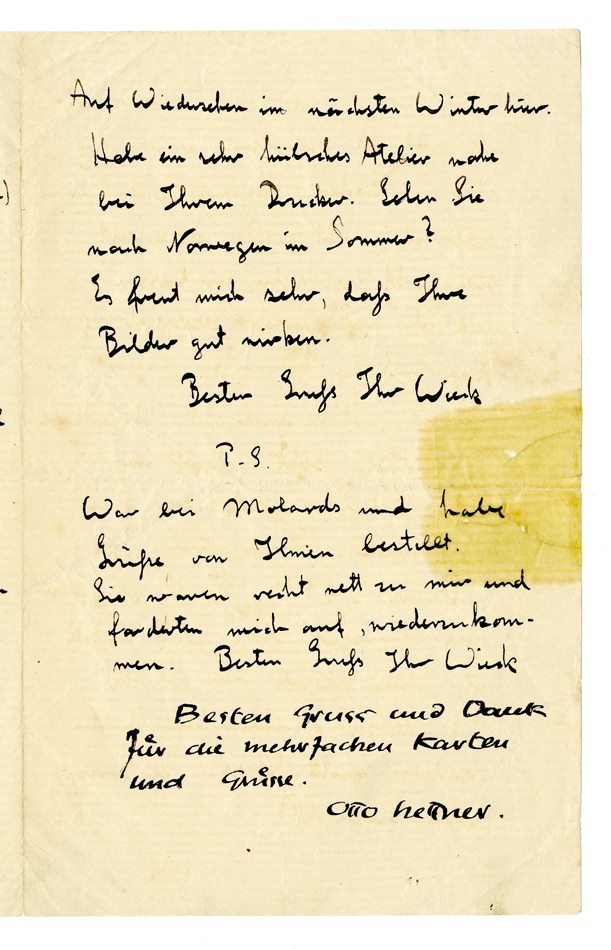 Auf Wiedersehen im nächsten Winter hier.
Habe ein sehr hübsches Atelier nahe
bei Ihrem Drucker. Gehen Sie
nach Norwegen im Sommer?
Es freut mich sehr, daß Ihre
Bilder gut wirken.
Besten Gruß Ihr Wieck
P.S.
War bei Molards und habe
Grüße von Ihnen bestellt.
Sie waren recht nett zu mir und
forderten mich auf, wiederzukom-
men. Besten Gruß Ihr Wieck
Besten Gruss und Dank
für die mehrfachen Karten
und Grüsse.
Otto Hettner.